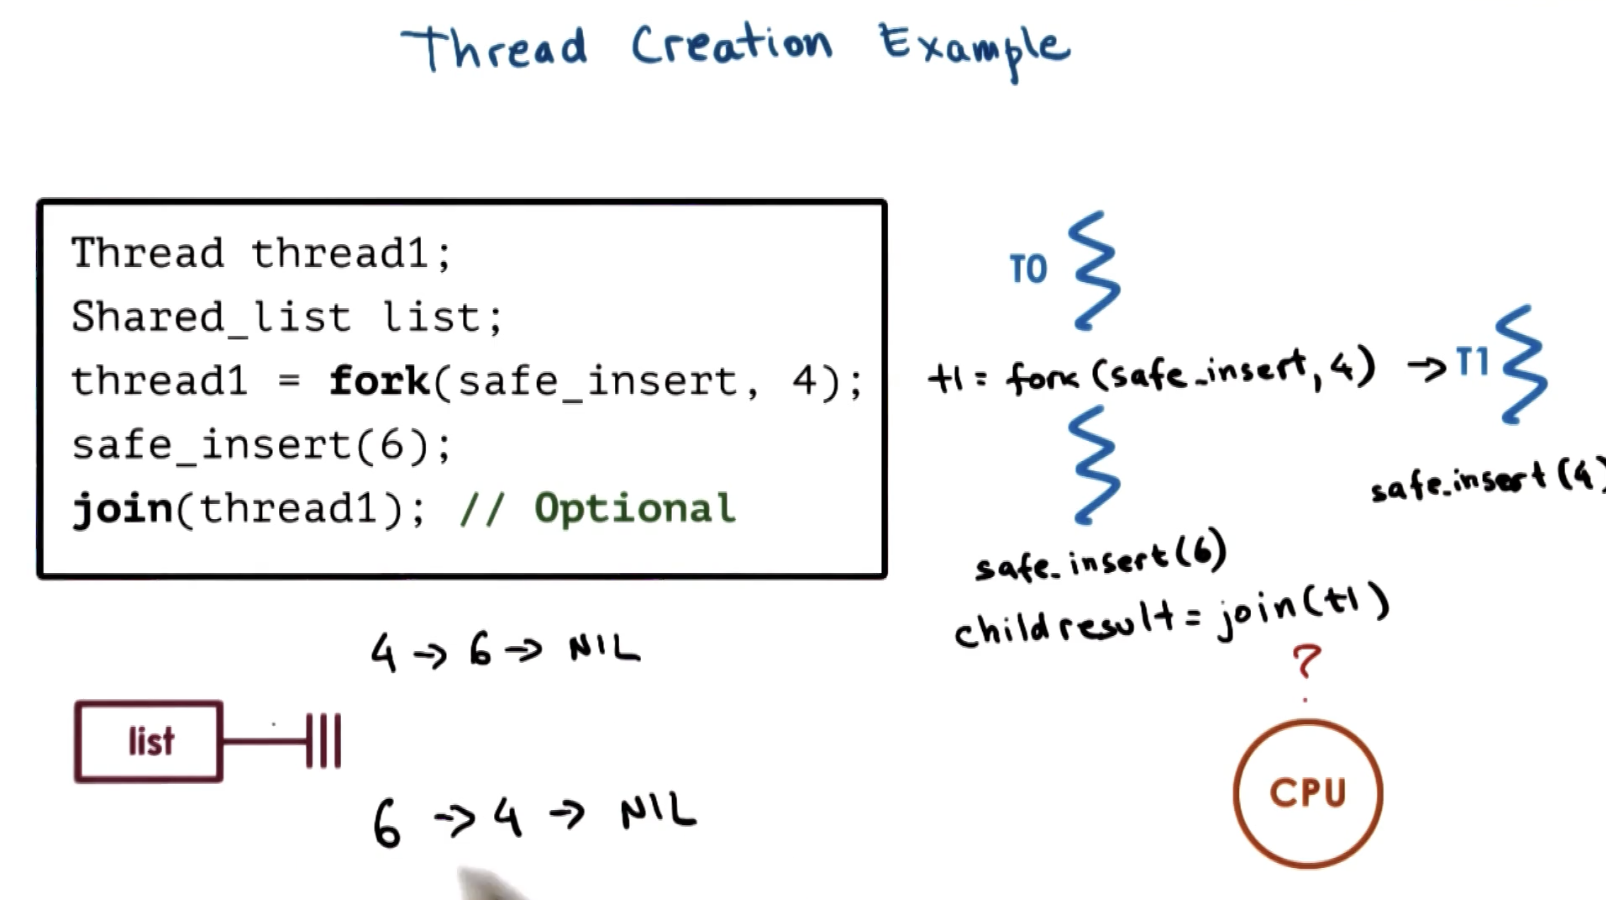 Thread Creation Example
Thread thread1;
Shared_list list;
thread1 = fork(safe_insert, 4);
safe_insert(6);
join(thread1); // Optional
T0
t1 = fork(safe_insert, 4) → T1
safe_insert(4)
safe_insert(6)
child result = join(t1)
4 → 6 → NIL
?
list
CPU
6 → 4 → NIL